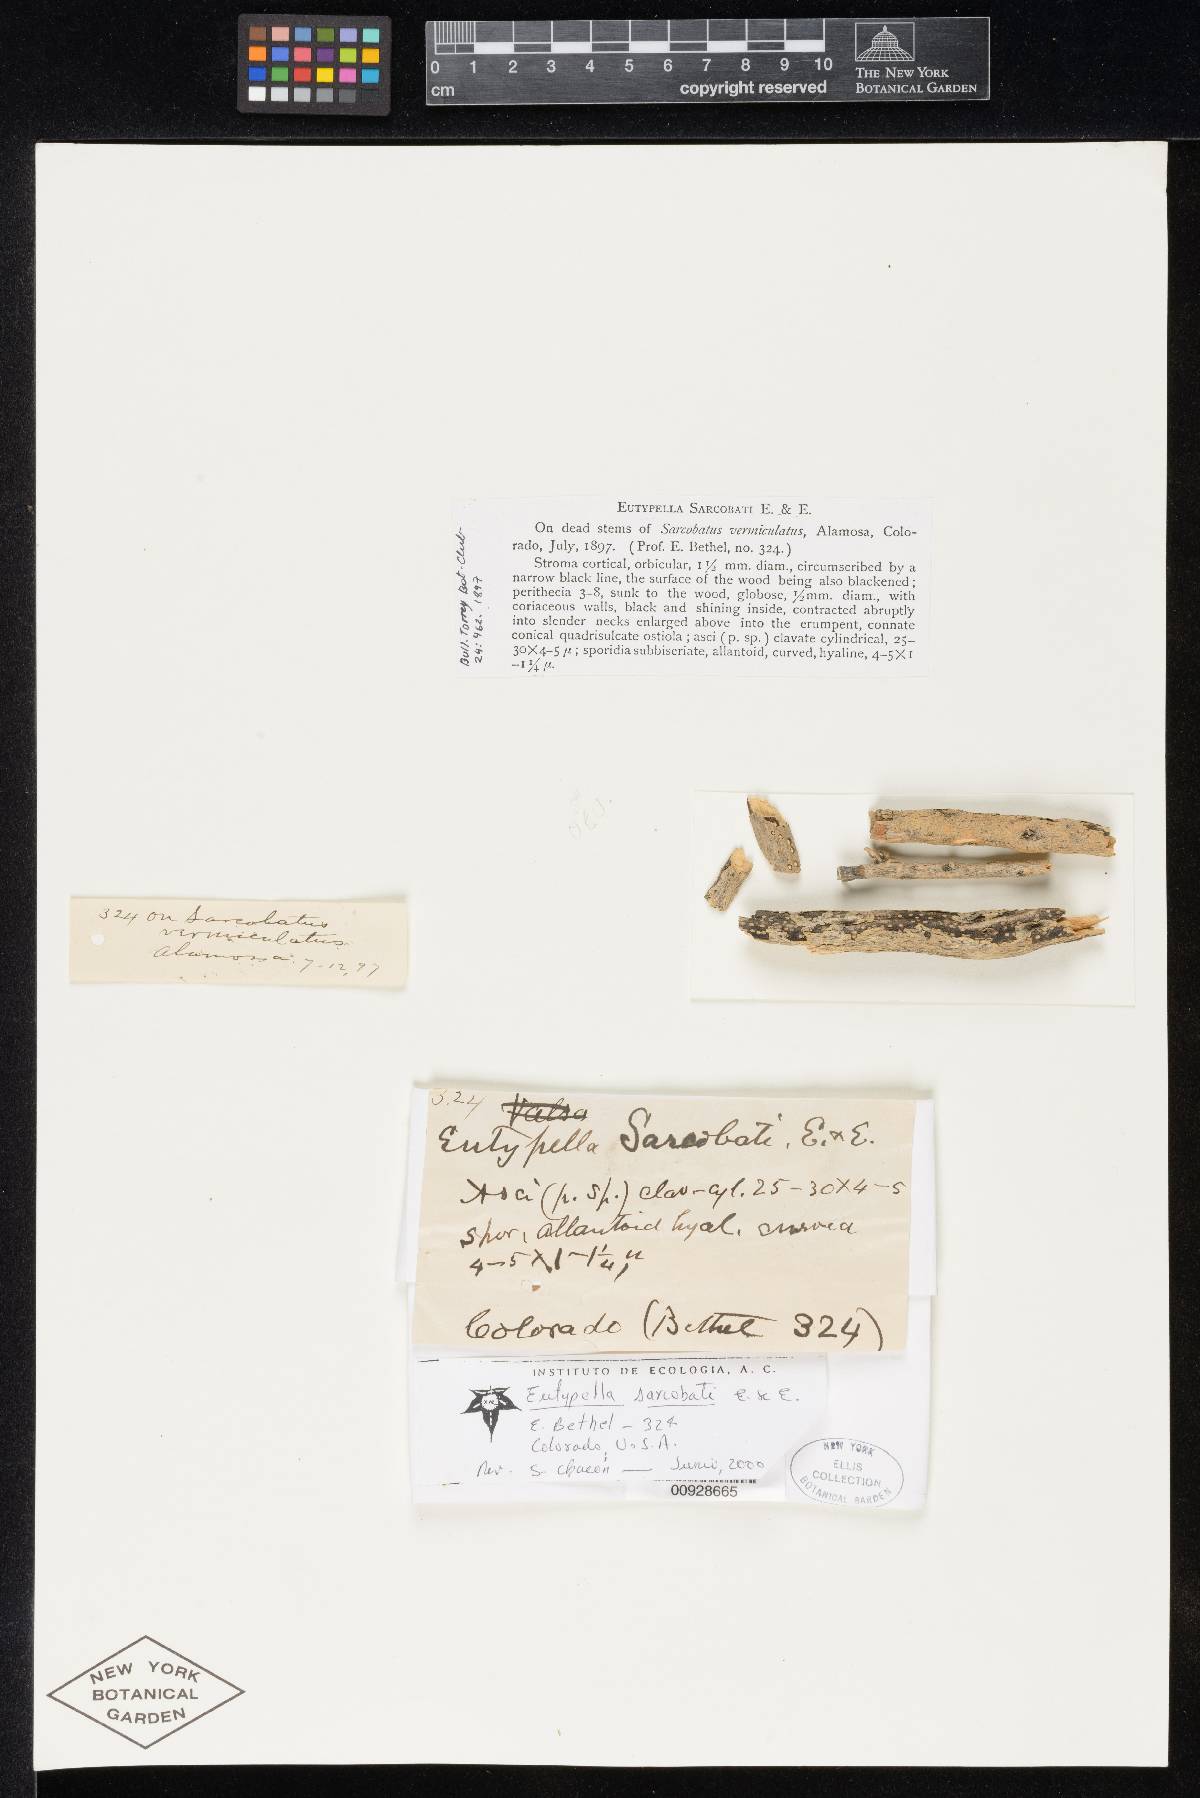 0 1 2 3 4 5 6 7 8 9 10
cm
copyright reserved
THE NEW YORK
BOTANICAL GARDEN
EUTYPELLA SARCOBATI E. & E.
On dead stems of Sarcobatus vermiculatus, Alamosa, Colo-
rado, July, 1897. (Prof. E. Bethel, no. 324.)
Stroma cortical, orbicular, 1½ mm. diam., circumscribed by a
narrow black line, the surface of the wood being also blackened;
perithecia 3–8, sunk to the wood, globose, ½mm. diam., with
coriaceous walls, black and shining inside, contracted abruptly
into slender necks enlarged above into the erumpent, connate
conical quadrisulcate ostiola; asci (p. sp.) clavate cylindrical, 25–
30×4–5 µ; sporidia subbiseriate, allantoid, curved, hyaline, 4–5×1
–1¼ µ.
Bull. Torrey Bot. Club
24: 462. 1897
324 on Sarcobatus
vermiculatus
Alamosa. 7-12, 97
324 Valsa
Eutypella Sarcobati, E. & E.
Asci (p. sp.) clav-cyl. 25–30×4–5
spor, allantoid hyal.
4–5×1–1¼ µ
Colorado (Bethel 324)
INSTITUTO DE ECOLOGIA, A. C.
Eutypella sarcobati E. & E.
E. Bethel – 324
Colorado, U.S.A.
Rev. S. Chacón — Junio, 2000
00928665
NEW YORK
ELLIS
COLLECTION
BOTANICAL GARDEN
NEW YORK
BOTANICAL
GARDEN